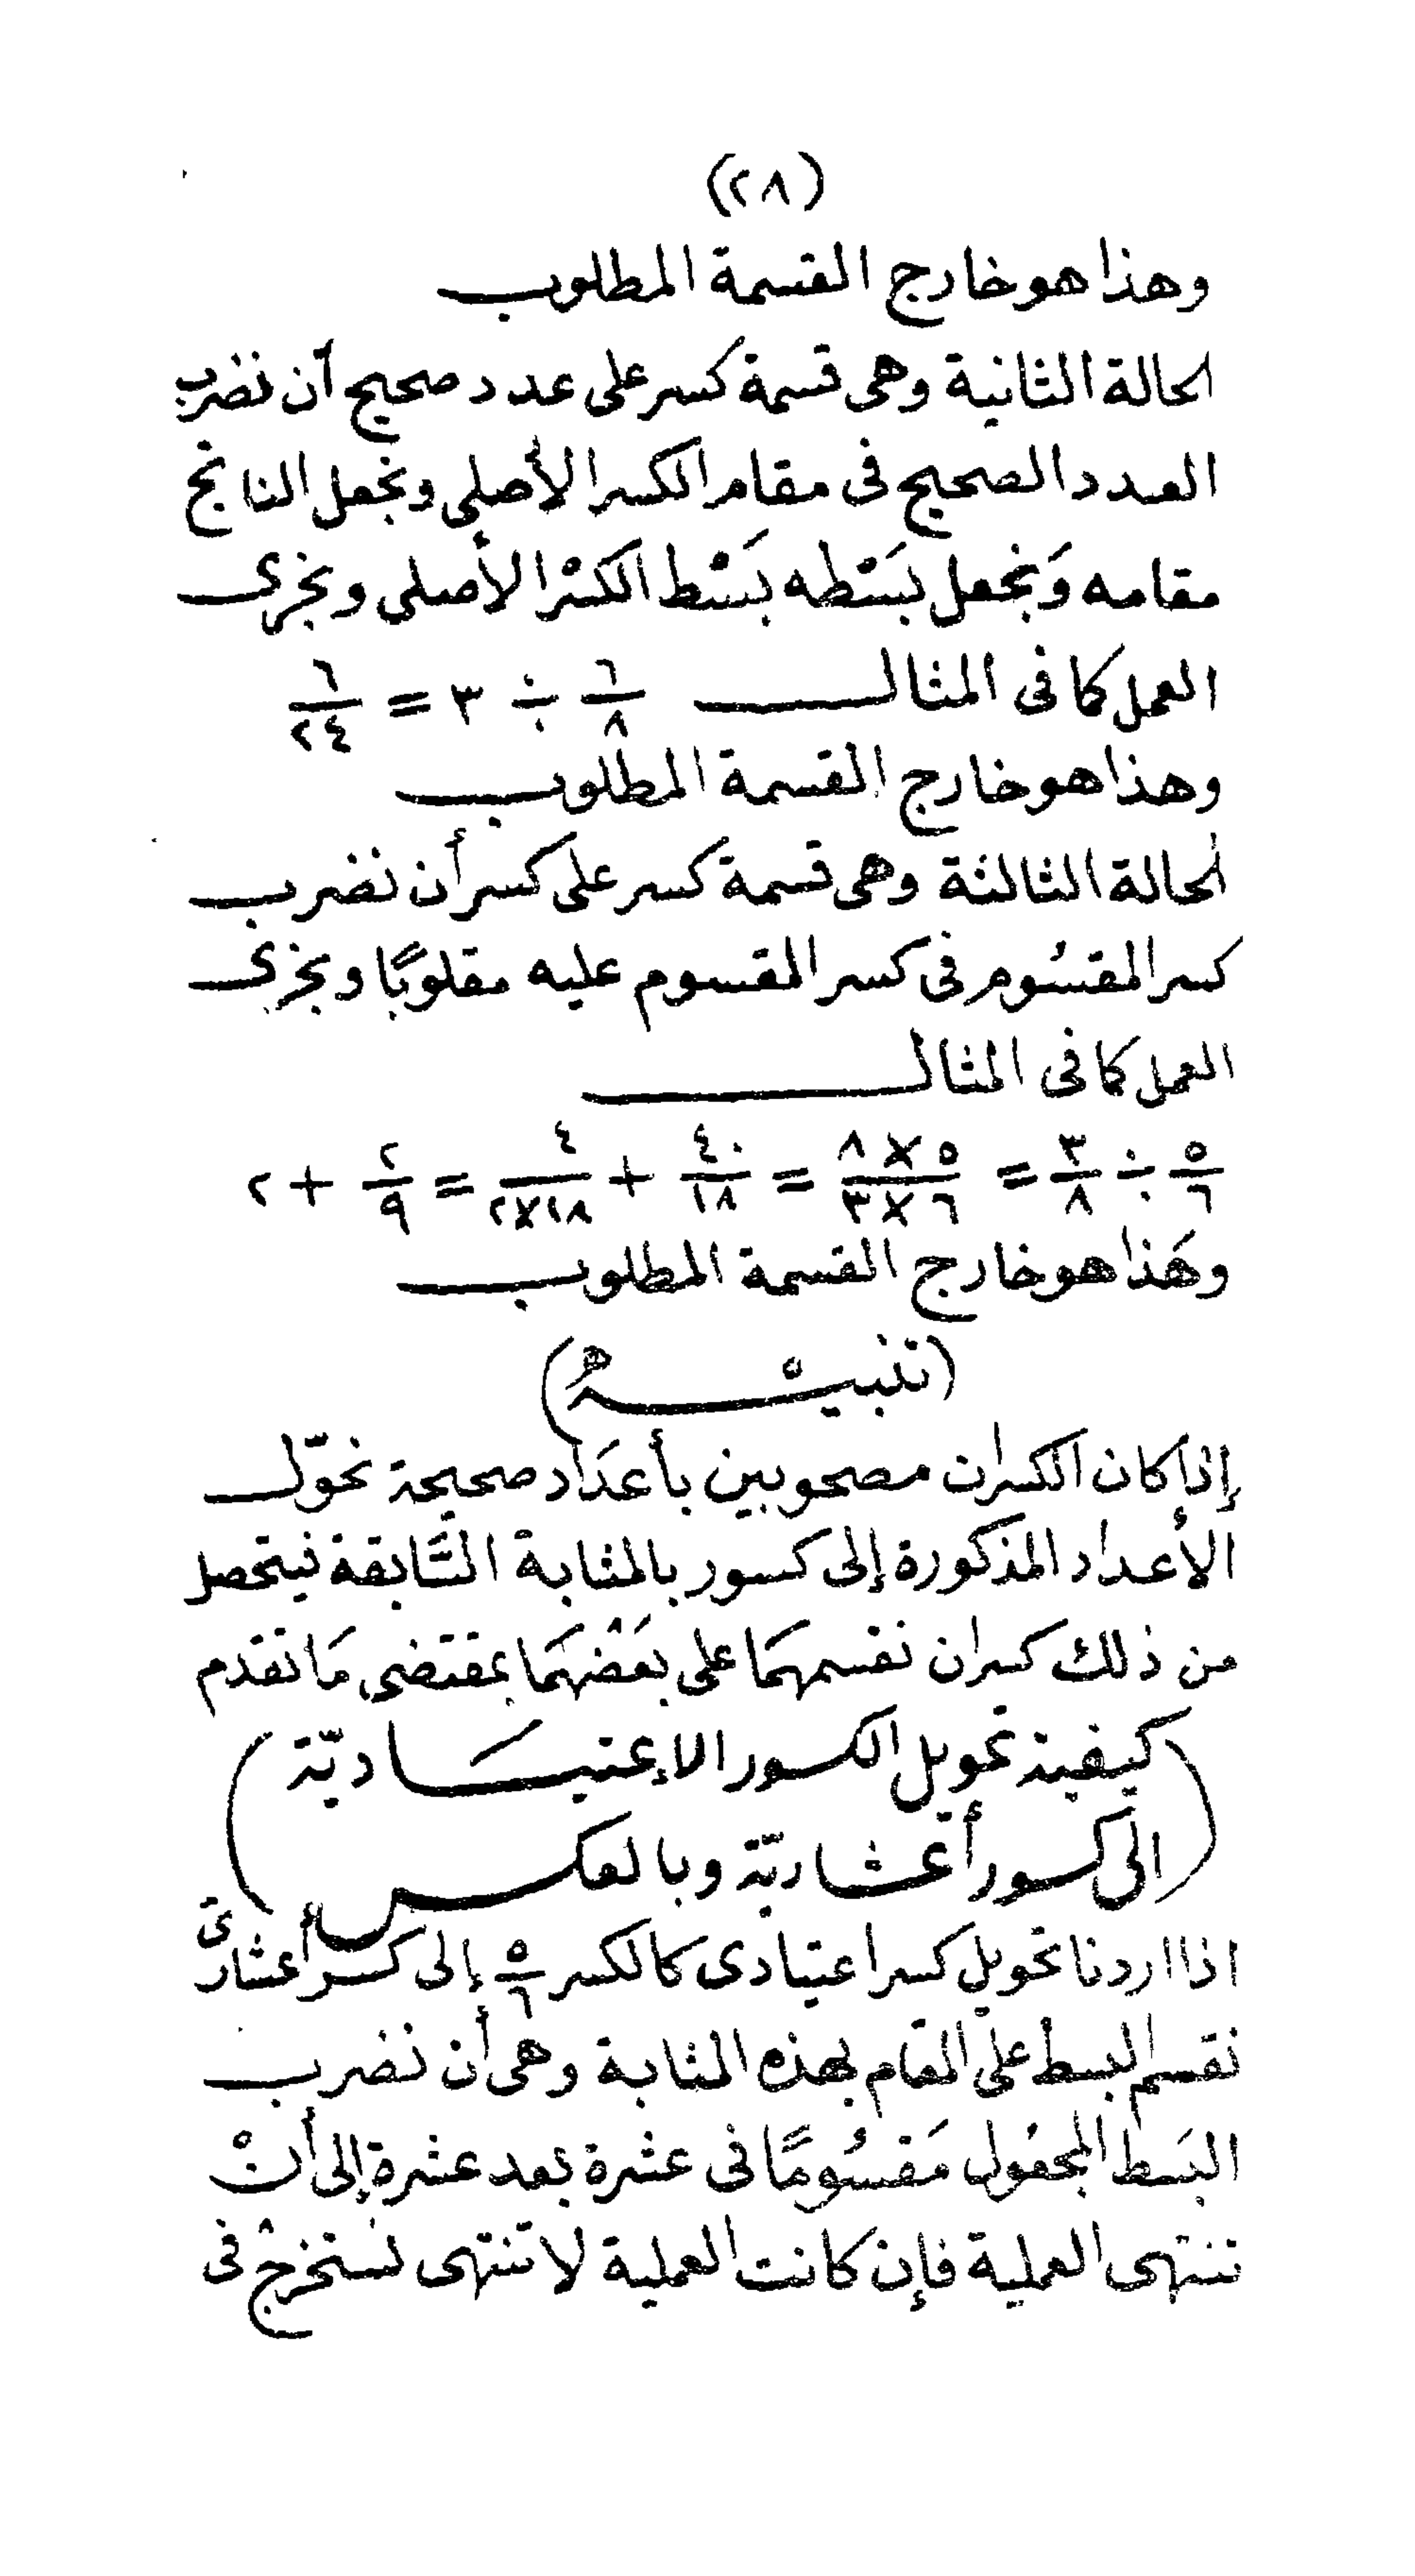 (٢٨)
وهذا هو خارج القسمة المطلوب
الحالة الثانية وهى قسمة كسر على عدد صحيح أن نضرب
العدد الصحيح فى مقام الكسر الأصلى ونجعل الناتج
مقامه وَنجعل بَسْطه بَسْط الكسْر الأصلى ونجرى
العمل كما فى المثال ٦/٨ ÷ ٣ = ٦/٢٤
وهذا هو خارج القسمة المطلوب
الحالة الثالثة وهى قسمة كسر على كسر أن نضرب
كسر المقسُوم فى كسر المقسوم عليه مقلوبًا ونجرى
العمل كما فى المثال
٥/٦ ÷ ٣/٨ = ٥×٨/٦×٣ = ٤٠/١٨ + ٤/١٨×٢ = ٢/٩ + ٢
وهَذا هو خارج القسمة المطلوب
(تنبيْهٌ)
إذا كان الكسران مصحوبين بأعدَاد صحيحة نحوّل
الأعداد المذكورة إلى كسور بالمثابة السَّابقة فيتحصل
من ذلك كسران نقسمهمَا على بعَضْهمَا بمقتضى مَا تقدم
(كيفية تحويل الكسور الاعتيَاديّة
الى كسور أعشاريّة وبالعكس)
اذا اردنا تحويل كسر اعتيادى كالكسر ٥/٦ إلى كسر أعشارىّ
نقسم البسط على المقام بهذه المثابة وهى أن نضرب
البَسط المجعُول مَقسُومًا فى عشرة بعد عشرة إلى أنْ
تنتهى العملية فإن كانت العملية لا تنتهى نستخرجْ فى